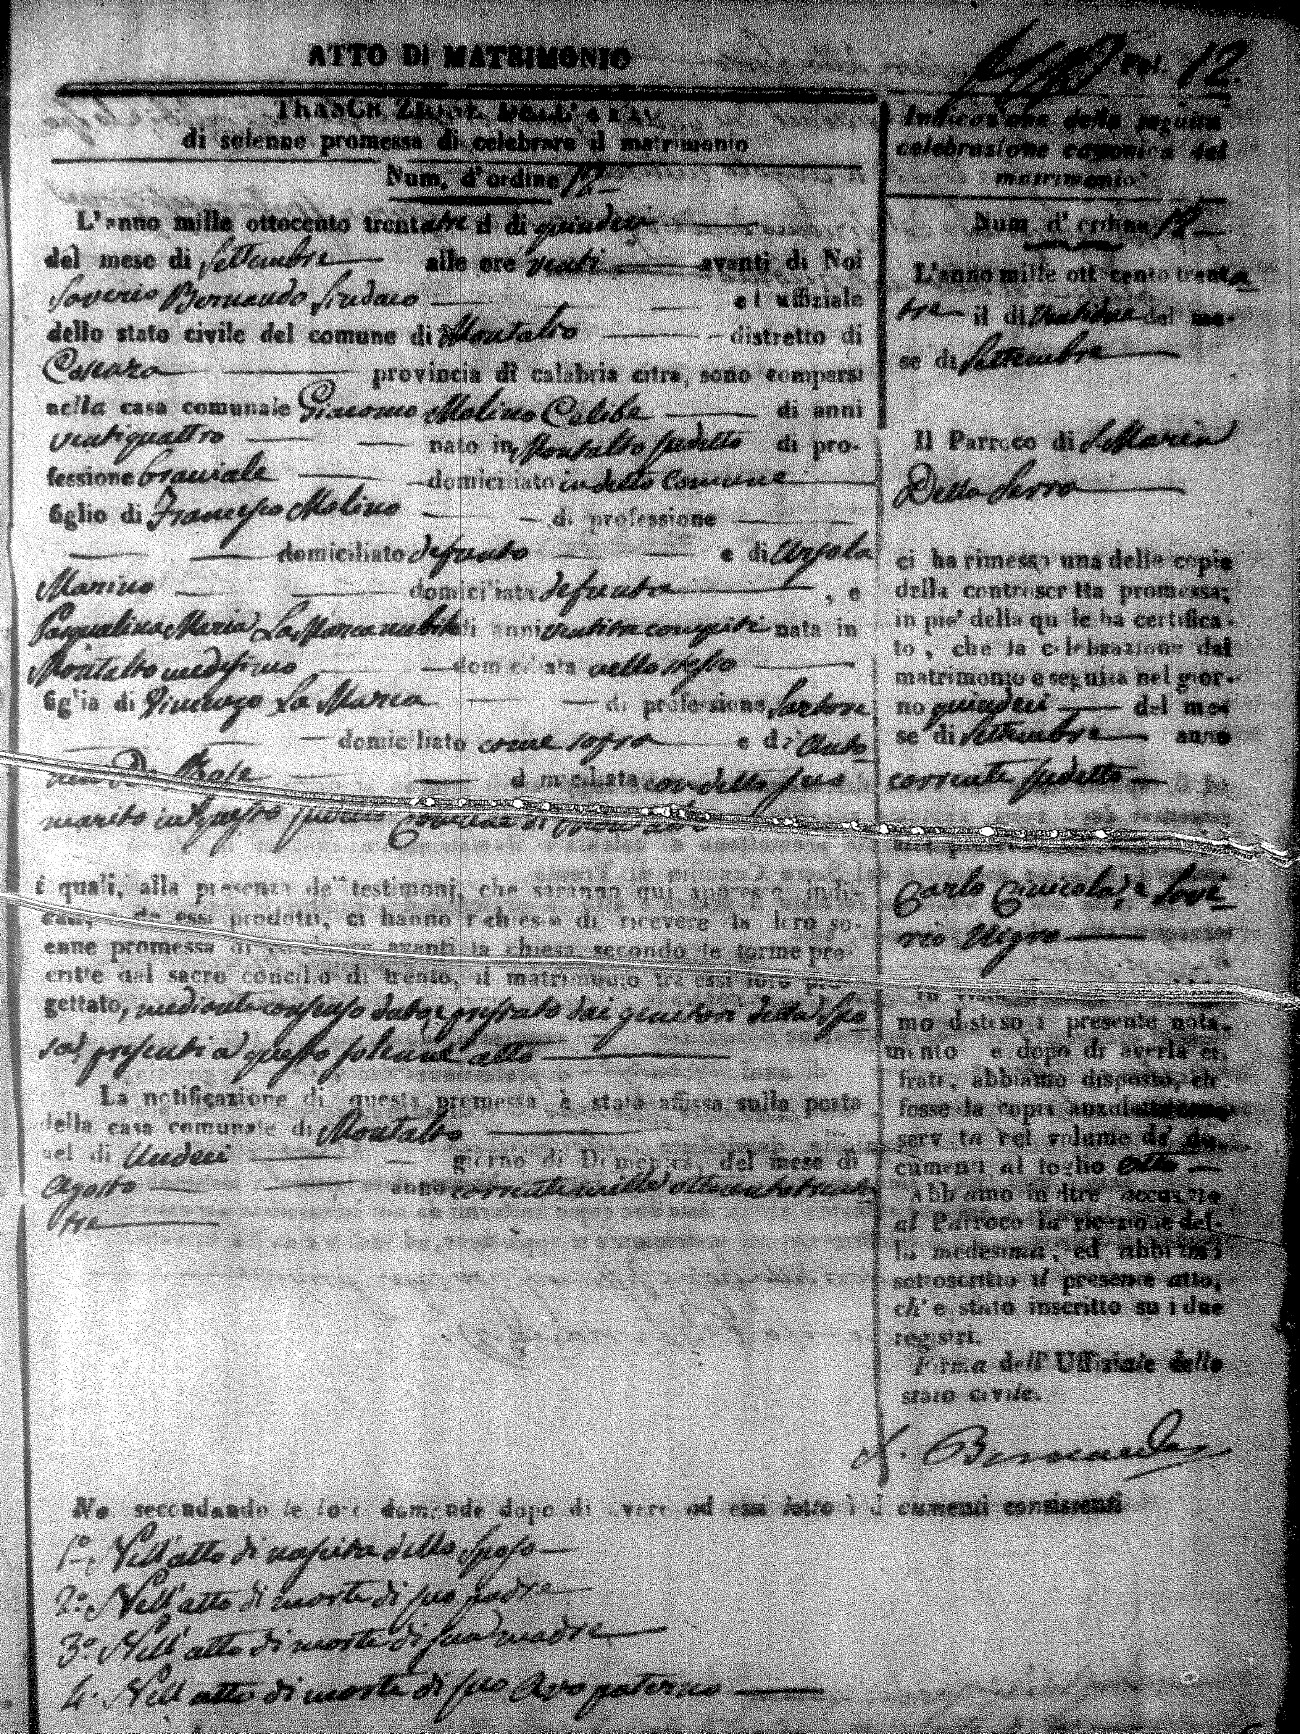 ATTO DI MATRIMONIO
Fol. 12.
di solenne promessa di celebrare il matrimonio
Num. d'ordine 12
L'anno mille ottocento trentatre il di quindeci
del mese di Settembre alle ore venti avanti di Noi
Saverio Bernaudo Sindaco ed uffiziale
dello stato civile del comune di Montalto distretto di
Cosenza provincia di calabria citra, sono comparsi
nella casa comunale Giacomo Molino Celibe di anni
ventiquattro nato in Montalto sudetto di pro-
fessione Braciale domiciliato in detto Comune
figlio di Francesco Molino di professione
domiciliato defunto e di Orsola
Manino domiciliata defunta, e
Pasqualina Maria La Marca nubile di anni venti nata in
Montalto medesimo domiciliata nello stesso
figlia di Vincenzo La Marca di professione Sartore
domiciliato come sopra e di
De Rose domiciliata con detto suo
marito in questo Comune di
i quali, alla presenza de' testimonj, che saranno qui appresso indi-
cati, e da essi prodotti, ci hanno richiesto di ricevere la loro so-
enne promessa di celebrare avanti la chiesa secondo le forme pre-
critte dal sacro concilio di trento, il matrimonio tra essi loro pro-
gettato, mediante consenso dato e prestato dai genitori della Spo
sa, presenti a questo solenne atto
La notificazione di questa promessa è stata affissa sulla porta
della casa comunale di Montalto
nel di Undeci giorno di Domenica, del mese di
Agosto anno corrente mille ottocento trenta
tre
Indicazione della seguita
celebrazione canonica del
matrimonio
Num. d'ordine 12
L'anno mille ottocento trenta
tre il di del me-
se di Settembre
Il Parroco di S. Maria
Della Serra
ci ha rimessa una delle copie
della controscritta promessa;
in piè della quale ha certifica-
to, che la celebrazione del
matrimonio è seguita nel gior-
no quindeci del me-
se di Settembre anno
corrente sudetto
Carlo e Save
rio Nigro
mo disteso il presente nota-
mento e dopo di averla ci-
frate, abbiamo disposto, che
fosse la copia
servata nel volume de' do-
cumenti al foglio otto
Abbiamo inoltre accusato
al Parroco la ricezione del-
la medesima, ed abbiamo
sottoscritto il presente atto,
ch'è stato inscritto su i due
registri.
Firma dell' Uffiziale dello
stato civile.
S. Bernaudo
No secondando le loro domande dopo di avere ad essi letto i documenti consistenti
1°. Nell'atto di nascita dello Sposo
2°. Nell'atto di morte di suo padre
3°. Nell'atto di morte di sua madre
4. Nell'atto di morte di suo Avo paterno